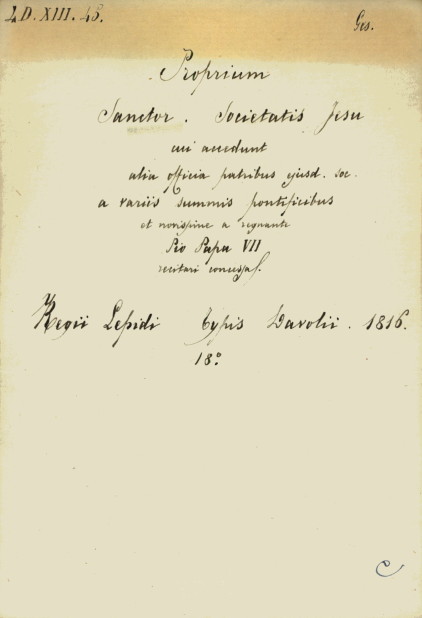 LD.XIII.43.
Ges.
Proprium
Sanctor. Societatis Jesu
cui accedunt
alia officia patribus ejusd. soc.
a variis summis pontificibus
et novissime a regnante
Pio Papa VII
recitari concessa.
Regii Lepidi Typis Davolii. 1816.
18°
C